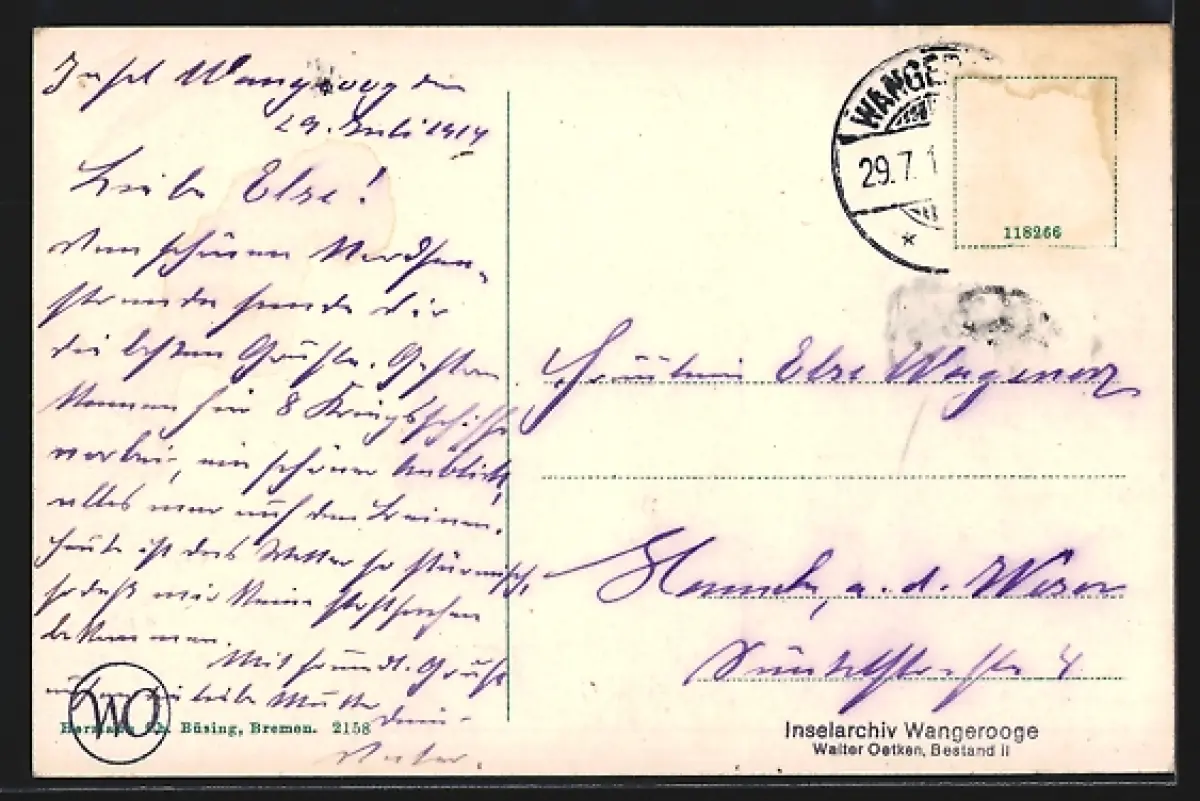 Insel Wangeroog den
29. Juli 1914
Liebe Else!
Vom schönen Nordsee-
strande sende Dir
die besten Grüße. Gestern
kamen hier 8 Kriegsschiffe
vorbei, ein schöner Anblick,
alles war auf den Beinen.
Heute ist das Wetter so stürmisch,
sodaß wir keine Postsachen
bekommen.
Mit freundl. Gruß
liebe Mutter
Dein
Vater.
WANGE
29.7.1
118266
Fräulein Else Wagener
Hameln, a. d. Weser
Süntelstraße 4
WO
Büsing, Bremen. 2158
Inselarchiv Wangerooge
Walter Oetken, Bestand II